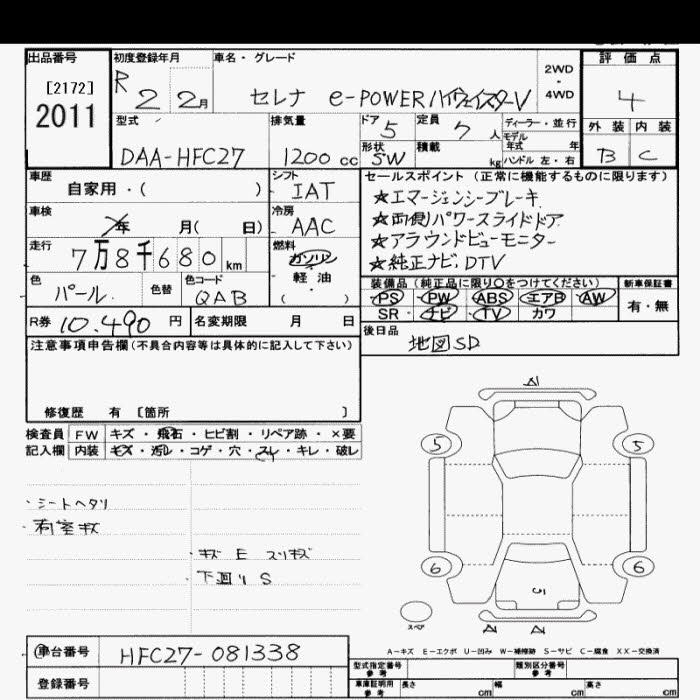 出品番号
[2172]
2011
初度登録年月
R 2 2月
車名・グレード
セレナ e-POWER ハイウェイスターV
2WD
・
4WD
評価点
4
外装 内装
B C
型式
DAA-HFC27
排気量
1200 cc
ドア 5
定員 7 人
形状 SW
積載 kg
ディーラー・並行
モデル
年式 年
ハンドル 左・右
車歴
自家用・( )
シフト
IAT
車検
年 月( 日)
冷房
AAC
走行
7万8千680 km
燃料
ガソリン
軽油
( )
色
パール
色替
色コード
QAB
R券 10,490 円
名変期限 月 日
セールスポイント (正常に機能するものに限ります)
☆エマージェンシーブレーキ
☆両側パワースライドドア
☆アラウンドビューモニター
☆純正ナビ,DTV
装備品 (純正品に限り○をつけてください)
PS PW ABS エアB AW
SR ナビ TV カワ
新車保証書
有・無
後日品
地図SD
注意事項申告欄(不具合内容等は具体的に記入して下さい)
修復歴 有 [箇所 ]
検査員 FW キズ・飛石・ヒビ割・リペア跡・×要
記入欄 内装 キズ・汚レ・コゲ・穴・スレ・キレ・破レ
・シートヘタリ
・荷室キズ
・キズ E スリキズ
・下回り S
A
5 5
6 6
スペア
A A
A−キズ E−エクボ U−凹み W−補修跡 S−サビ C−腐食 XX−交換済
車台番号 HFC27-081338
登録番号
型式指定番号
参考
類別区分番号
参考
車庫証明用
参考
長さ cm 幅 cm 高さ cm